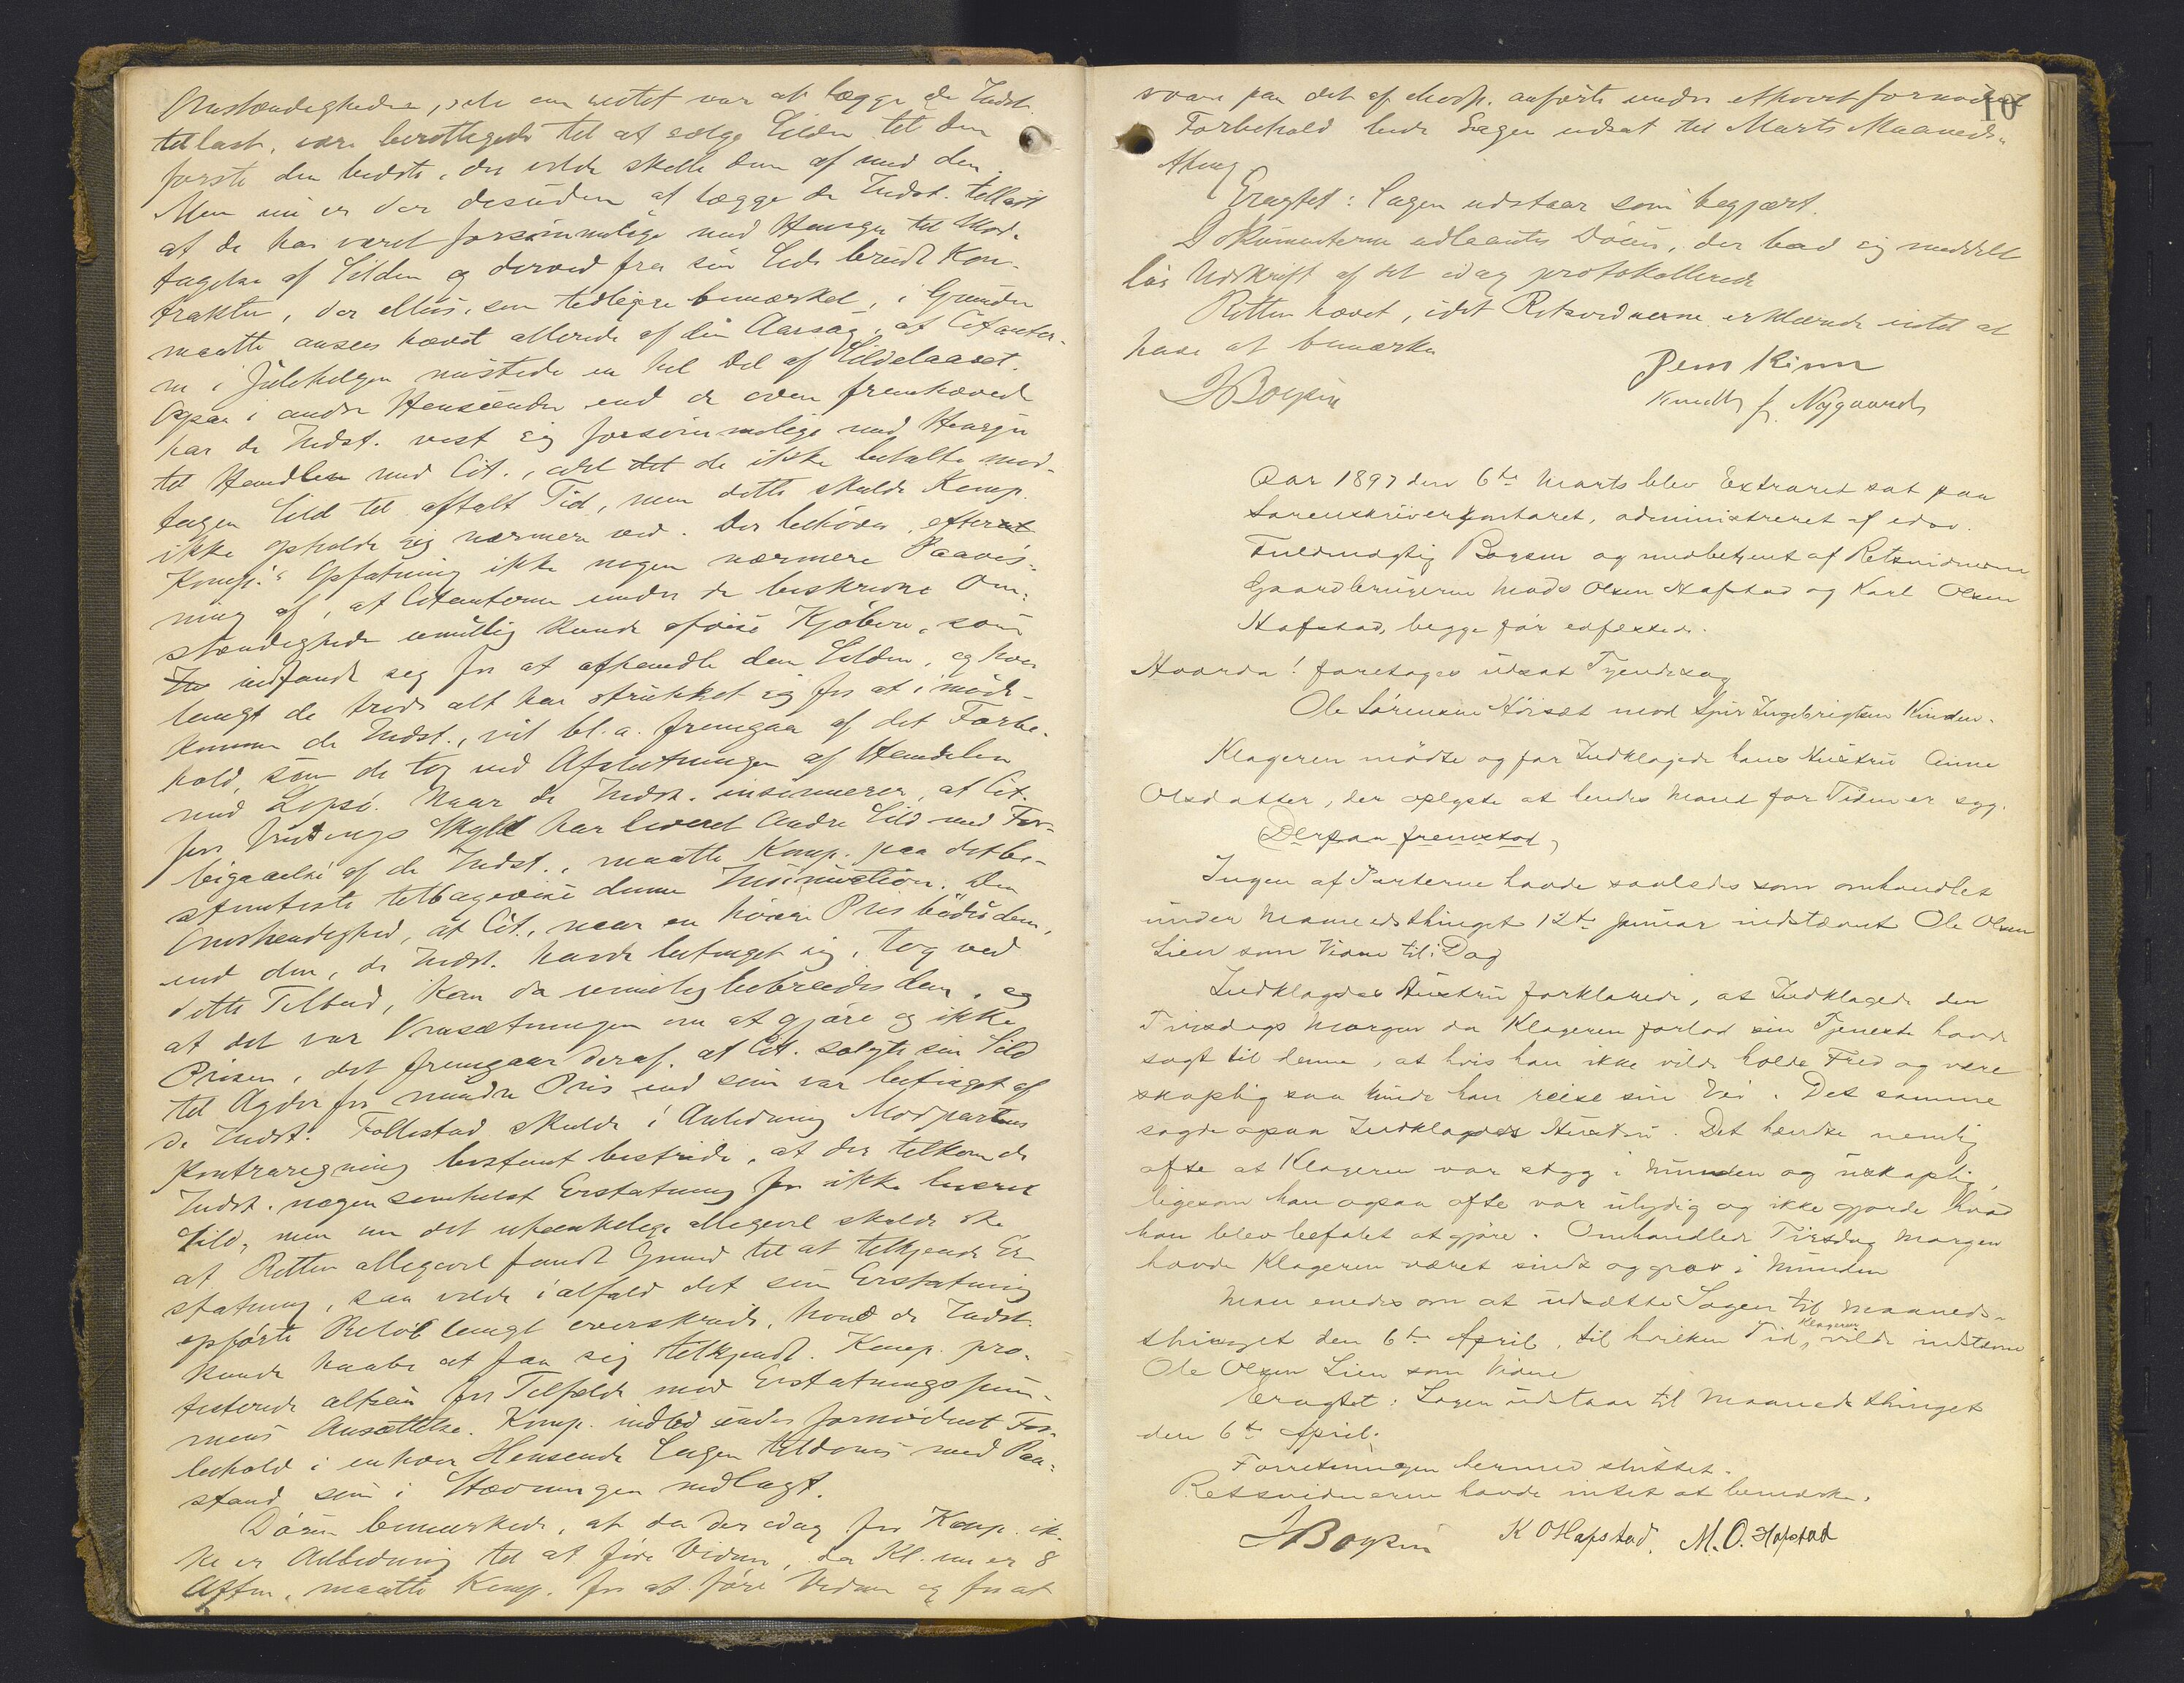 Omstændighederne, selv om intet var at lægge de Indst.
til last, være berettigede til at sælge Silden til den
første den bedste, der vilde skille dem af med den.
Men nu er der desuden at lægge de Indst. tillast
at de har været forsømmelige med Hensyn til Mod-
tagelse af Silden og derved fra sin Side brudt Kon-
trakten, der ellers, som tidligere bemærket, i Grunden
maatte ansees hævet allerede af den Aarsag, at Citanter-
ne i Julehelgen mistede en hel Del af Sildelaaset.
Ogsaa i andre Henseender end de oven fremhævede
har de Indst. vist sig forsømmelige med Hensyn
til Handlen med Cit., idet det de ikke betalte mod-
tagen Sild til aftalt Tid, men dette skulde Komp.
ikke opholde sig nærmere ved. Der behøves efter
Komp.s Opfatning ikke nogen nærmere Paavis-
ning af, at Citanterne under de beskrevne Om-
stændigheder umulig kunde afvise Kjøbere, som
indfandt sig for at afhandle dem Silden, og hvor
langt de trods alt har strukket sig for at imøde-
komme de Indst., vil bl. a. fremgaa af det Forbe-
hold, som de tog ved Afslutningen af Handelen
med Lepsø. Naar de Indst. insinuerer, at Cit.
for Vindings Skyld har leveret Andre Sild med For-
bigaaelse af de Indst., maatte Komp. paa det be-
stemteste tilbagevise denne Insinuation. Den
Omstændighed, at Cit., naar en høiere Pris bødes dem,
end den, de Indst. havde betinget sig, tog ved
dette Tilbud, kan da umulig bebreides dem, og
at det var Omsætningen om at gjøre og ikke
Prisen, det fremgaar deraf, at Cit. solgte sin Sild
til Agdor for mindre Pris end som var betinget af
de Indst. Follestad skulde i Anledning Modpartens
Kontraregning bestemt bestride, at der tilkom de
Indst. nogensomhelst Erstatning for ikke leveret
Sild, men om det utænkelige allegevel skulde ske
at Retten allegevel fandt Grund til at tilkjende Er-
statning, saa vilde ialfald det som Erstatning
opførte Beløb langt overskride, hvad de Indst.
kunde haabe at faa sig tilkjendt. Komp. pro-
testerede altsaa for Tilfælde mod Erstatningssum-
mens Ansættelse. Komp. indlod under fornødent For-
behold i enhver Henseende Sagen til Doms med Paa-
stand som i Stævningen nedlagt.
Døsen bemærkede, at da der idag for Komp. ik-
ke er Anledning til at føre Vidner, da Kl. nu er 8
Aften, maatte Komp. for at føre Vidner og for at
10
svare paa det af Modp. anførte under ethvert fornødent
Forbehold bede Sagen udsat til Marts Maaneds-
thing
Eragtet: Sagen udstaar som begjært.
Dokumenterne udlaantes Døsen, der bad sig meddelt
løs Udskrift af det idag protokollerede
Retten hævet, idet Retsvidnerne erklærede intet at
have at bemærke
JBoysen
Jens Kinn
Knudt J. Nygaard
Aar 1897 den 6te Marts blev Extraret sat paa
Sorenskriverkontoret, administreret af edsv.
Fuldmægtig Boysen og medbetjent af Retsvidnerne
Gaardbrugerne Mads Olsen Hafstad og Karl Olsen
Hafstad, begge før edfæstede.
Hvorda! foretages udsat Tjenersag
Ole Sørensen Hovset mod Sjur Ingebrigtsen Kinden.
Klageren mødte og for Indklagede hans Hustru Anne
Olsdatter, der oplyste at hendes Mand for Tiden er syg.
Derpaa fremstod,
Ingen af Parterne havde saaledes som omhandlet
under Maanedsthinget 12te Januar indstævnt Ole Olsen
Lien som Vidne til i Dag
Indklagedes Hustru forklarede, at Indklagede den
Tirsdags Morgen da Klageren forlod sin Tjeneste havde
sagt til denne, at hvis han ikke vilde holde Fred og være
skaplig saa kunde han reise sin Vei. Det samme
sagde ogsaa Indklagedes Hustru. Det hændte nemlig
ofte at Klageren var stygg i Munden og uskaplig,
ligesom han ogsaa ofte var ulydig og ikke gjorde hvad
han blev befalet at gjøre. Omhandlede Tirsdag Morgen
havde Klageren været sindt og grov i Munden
Man enedes om at udsætte Sagen til Maaneds-
thinget den 6te April, til hvilken Tid Klageren vilde indstævne
Ole Olsen Lien som Vidne
Eragtet: Sagen udstaar til Maanedsthinget
den 6te April.
Forretningen hermed sluttet.
Retsvidnerne havde intet at bemærke.
JBoysen K O Hafstad. M. O. Hafstad